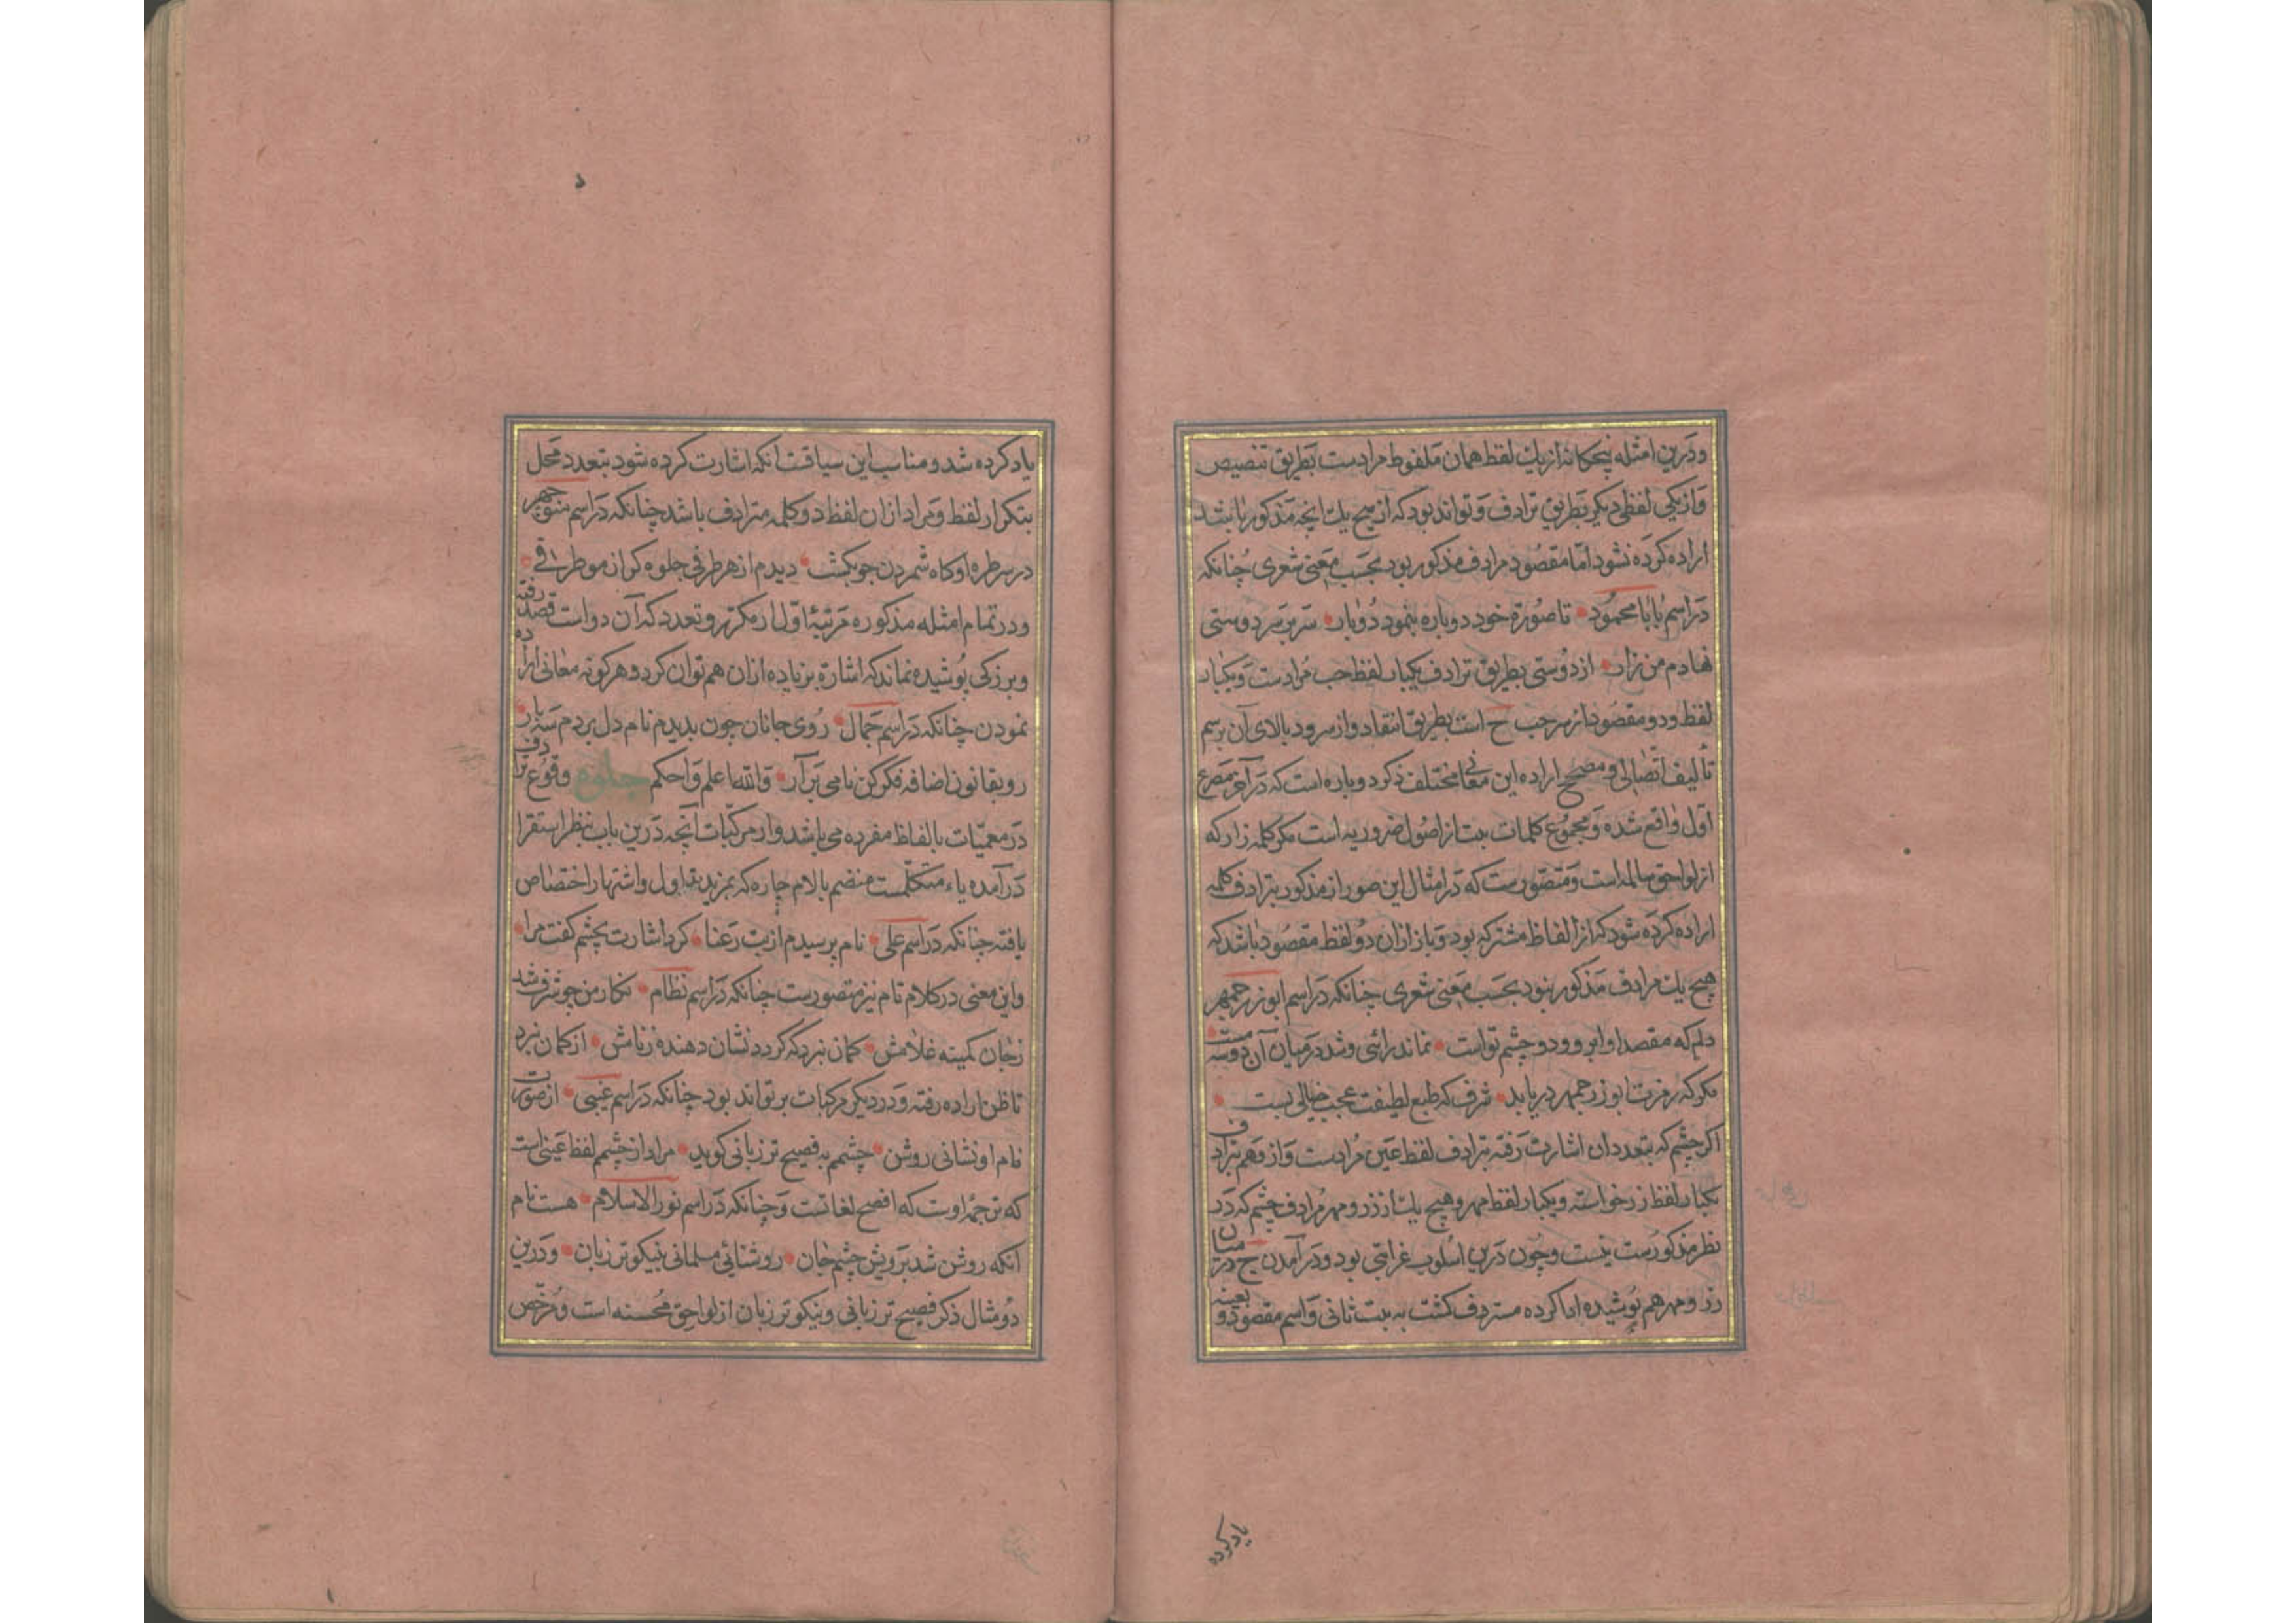 ودرین امثله پنجکانه از یك لفظ همان ملفوظ مرادست بطریق تنصیص
واز یکی لفظی دیکر بطریق ترادف وتواند بود که از هیچ یك انچه مذکور باشد
اراده کرده نشود اما مقصود مرادف مذکور بود بحسب معنی شعری چنانکه
در اسم بابا محمود تا صورة خود دوباره بنمود دوبار سر بر سر دوستی
نهادم من زار از دوستی بطریق ترادف یکبار لفظ حب مرادست ویکبار
لفظ ود و مقصود از سر حب ح است بطریق انتقاد واز سر ود بالای آن برسم
تألیف اتصالی ومصحح اراده این معانی مختلف ذکر دوباره است که در آخر مصرع
اول واقع شده ومجموع کلمات بیت از اصول ضروریه است مکر کلمه زار که
از لواحق سالمه است ومتصورست که در امثال این صور از مذکور بترادف کلمه
اراده کرده شود که از الفاظ مشترکه بود وباز ازان دو لفظ مقصود باشد که
هیچ یك مرادف مذکور نبود بحسب معنی شعری چنانکه در اسم ابوزرجمهر
دلم که مقصد او ابرو ودو چشم تو است نماند رائی وشد در میان آن دو سه مست
مکو که رمزت ابوزرجمهر دریابد شرف که طبع لطیفت عجب خیالی بست
اکر چشم که بتعدد ان اشارت رفته بترادف لفظ عین مرادست واز وهم بترادف
یکبار لفظ زر خواسته ویکبار لفظ مهر وهیچ یك از زر ومهر مرادف چشم که در
نظر مذکورست نیست وچون درین اسلوب غرابتی بود ودر آمدن ج در میان
زر ومهر هم پوشیده ادا کرده مستردف کشت به بیت ثانی واسم مقصود دو بعینه
یاد کرده
یاد کرده شد ومناسب این سیاقت انکه اشارت کرده شود بتعدد محل
بتکرار لفظ ومراد ازان لفظ دو کلمه مترادف باشد چنانکه در اسم منوچهر
در سر طره او کاه شمردن جو بکشت دیدم از هر طرفی جلوه کر از مو طرفی
ودر تمام امثله مذکوره مرتبهٔ اول از مکرر وتعدد که آن دو است قصد رفته
وبر زکی پوشیده نماند که اشارة بزیاده ازان هم توان کرد وهر کونه معانی اراده
نمودن چنانکه در اسم جمال روی جانان چون بدیدم نام دل بردم سه بار
رو بقانون اضافه فکر کن نامی برآر والله اعلم واحکم جلوه وقوع ترادف
در معمیات بالفاظ مفرده می باشد واز مرکبات آنچه درین باب بنظر استقرا
درآمده یاء متکلمست منضم بالام جاره که بمزید تداول واشتهار اختصاص
یافته چنانکه در اسم علی نام پرسیدم از بت رعنا کرد اشارت بچشم کفت مرا
واین معنی در کلام تام نیز متصورست چنانکه در اسم نظام نکار من چو شرف شد
زجان کمینه غلامش کمان نبرد که کردد نشان دهنده زنامش از کمان نبرد
تاظن اراده رفته ودر دیکر مرکبات بر تواند بود چنانکه در اسم غیبی از صورت
نام او نشانی روشن چشمم به فصیح تر زبانی کوید مراد از چشمم لفظ عینی است
که ترجمه اوست که افصح لغاتست وچنانکه در اسم نور الاسلام هست نام
آنکه روشن شد برویش چشم جان روشنائی مسلمانی بنیکوتر زبان ودرین
دو مثال ذکر فصیح تر زبانی ونیکوتر زبان از لواحق محسنه است ومرخص